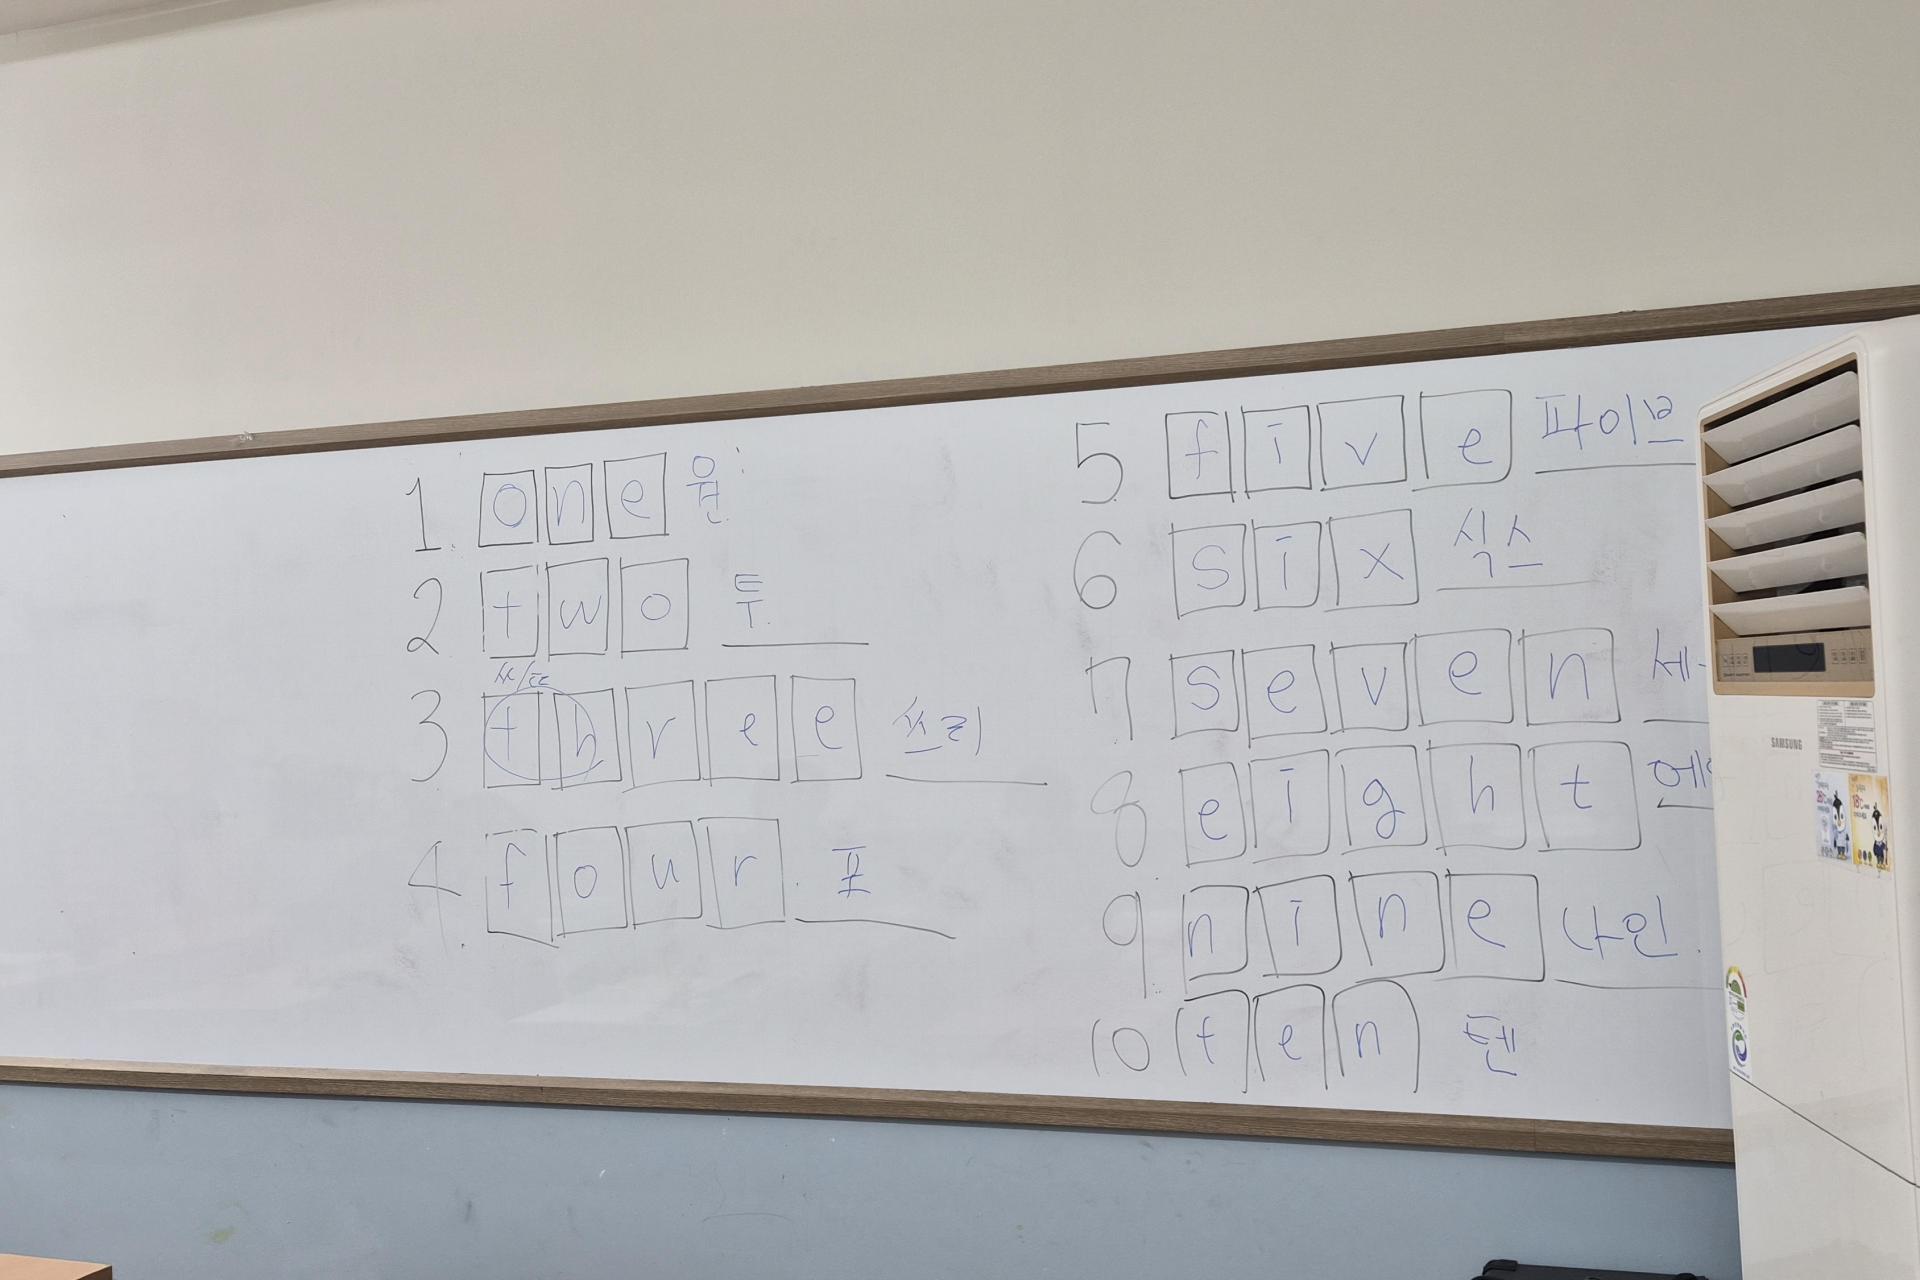 1. one 원
2 two 투
ㅆ/ㄸ
3 three 쓰리
4. four 포
5 five 파이브
6 six 식스
7 seven 세
8 eight 에
9 nine 나인
10 ten 텐
SAMSUNG
18℃